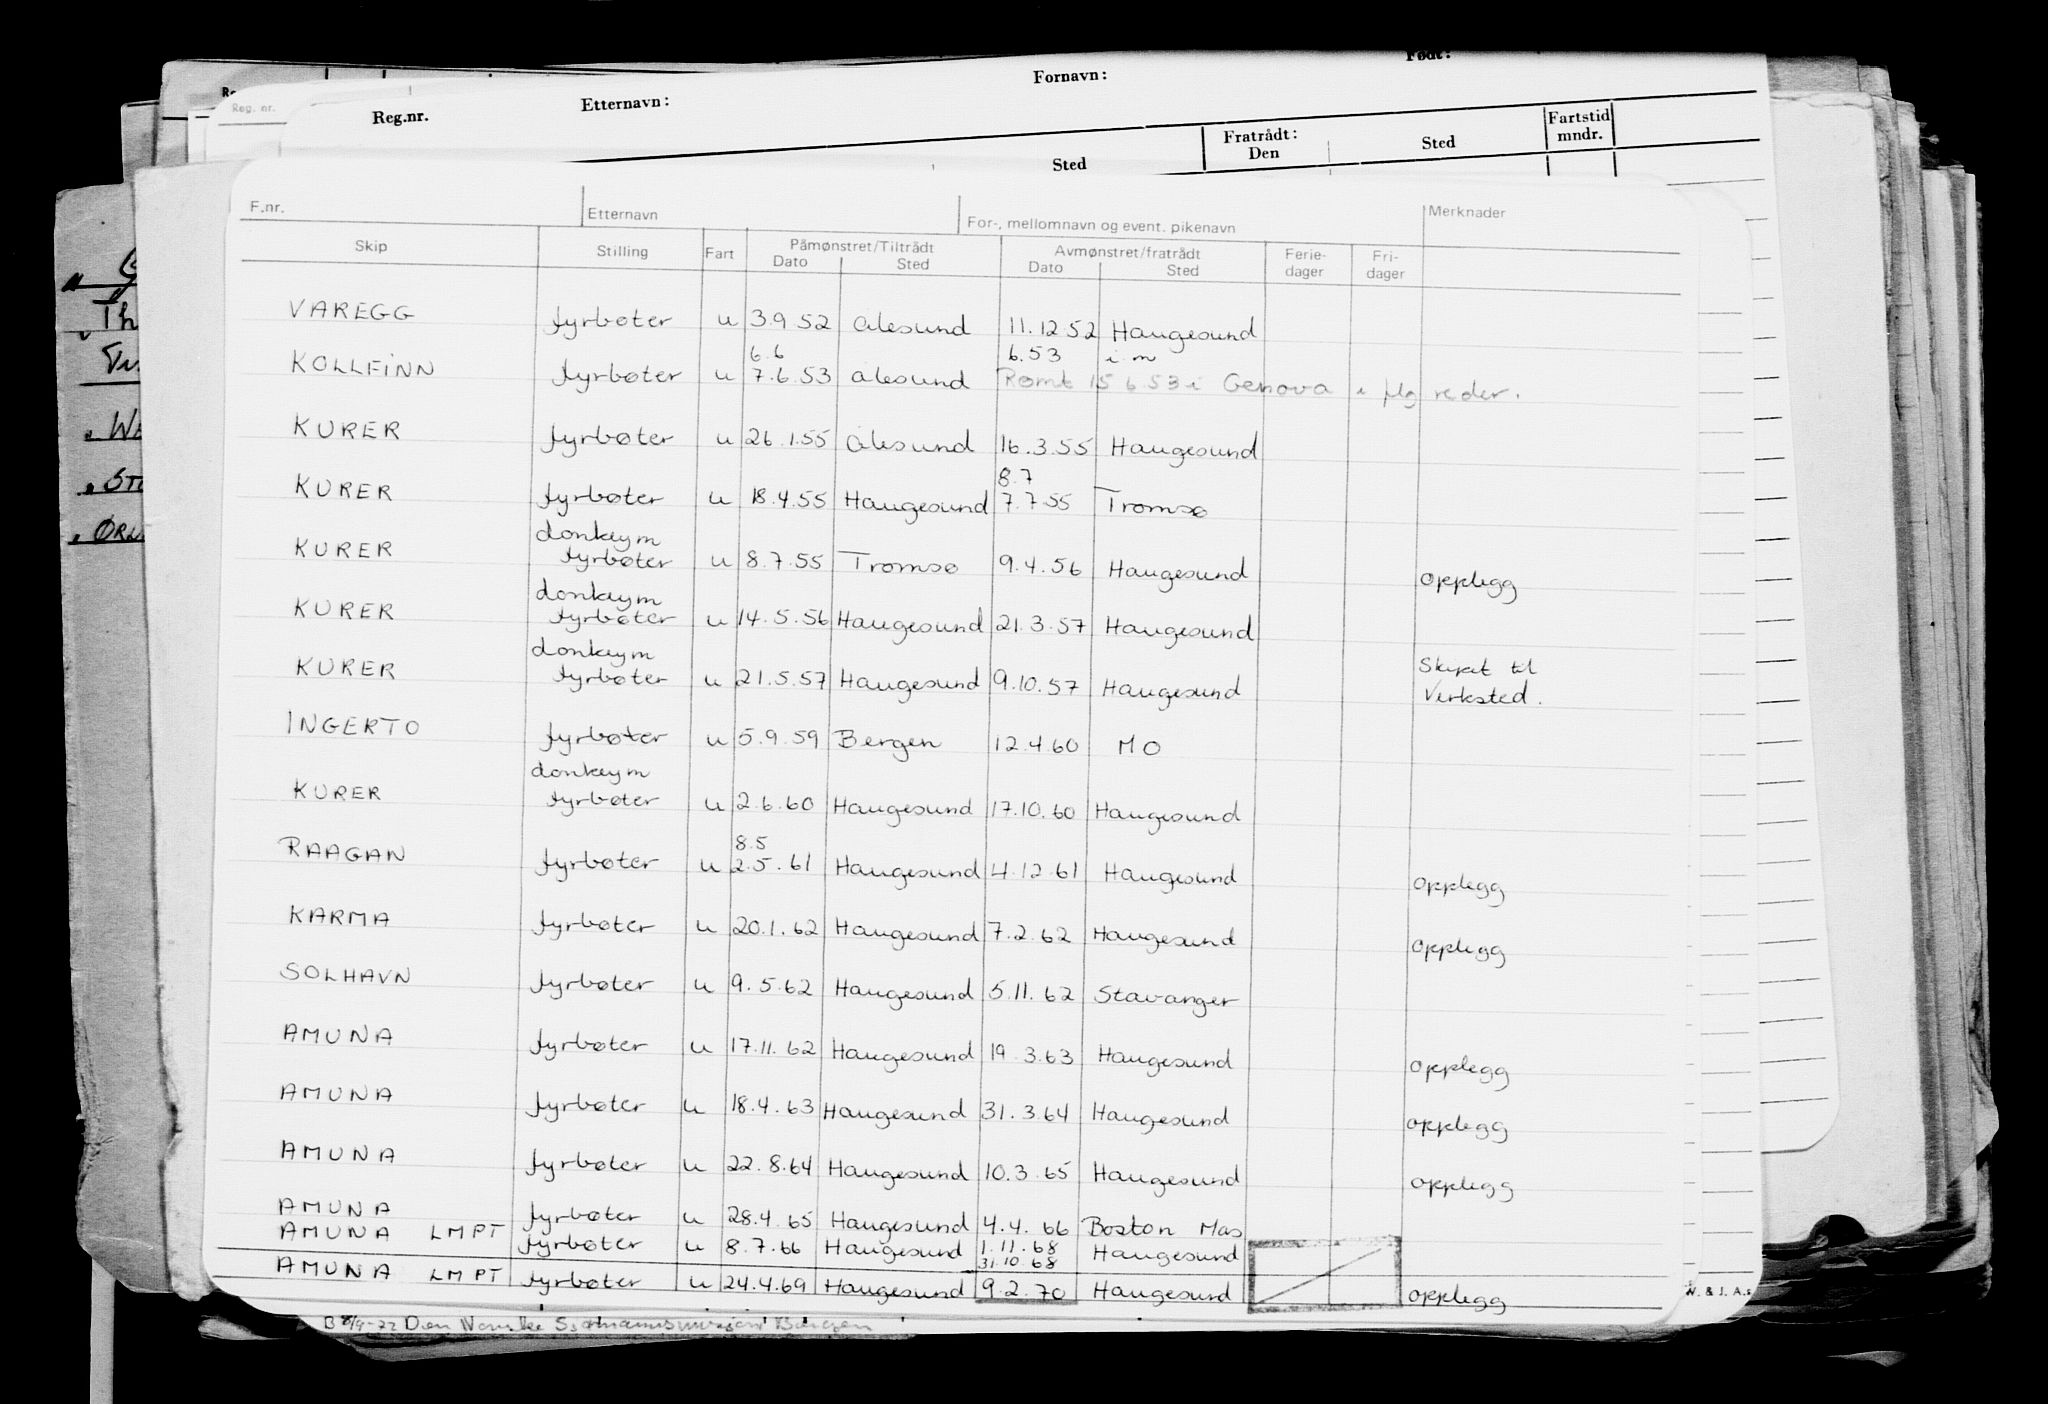 Født:
Fornavn:
Reg.nr. Etternavn:
Reg. nr.
Fratrådt: Fartstid
Sted Den Sted mndr.
F.nr. Etternavn For-, mellomnavn og event. pikenavn Merknader
Skip Stilling Fart Påmønstret/Tiltrådt Avmønstret/fratrådt Ferie-dager Fri-dager
Dato Sted Dato Sted
VAREGG fyrbøter u 3.9.52 Ålesund 11.12.52 Haugesund
6.6 6.53 i.m
KOLLFINN fyrbøter u 7.6.53 Ålesund Rømt 15.6.53 i Genova i flg reder.
KURER fyrbøter u 26.1.55 Ålesund 16.3.55 Haugesund
8.7
KURER fyrbøter u 18.4.55 Haugesund 7.7.55 Tromsø
donkeym
KURER fyrbøter u 8.7.55 Tromsø 9.4.56 Haugesund opplegg
donkeym
KURER fyrbøter u 14.5.56 Haugesund 21.3.57 Haugesund
donkeym
KURER fyrbøter u 21.5.57 Haugesund 9.10.57 Haugesund Skipet til Verksted.
INGERTO fyrbøter u 5.9.59 Bergen 12.4.60 MO
donkeym
KURER fyrbøter u 2.6.60 Haugesund 17.10.60 Haugesund
8.5
RAAGAN fyrbøter u 2.5.61 Haugesund 4.12.61 Haugesund opplegg
KARMA fyrbøter u 20.1.62 Haugesund 7.2.62 Haugesund opplegg
SOLHAVN fyrbøter u 9.5.62 Haugesund 5.11.62 Stavanger
AMUNA fyrbøter u 17.11.62 Haugesund 19.3.63 Haugesund opplegg
AMUNA fyrbøter u 18.4.63 Haugesund 31.3.64 Haugesund opplegg
AMUNA fyrbøter u 22.8.64 Haugesund 10.3.65 Haugesund opplegg
AMUNA fyrbøter u 28.4.65 Haugesund 4.4.66 Boston Mas
AMUNA LMPT fyrbøter u 8.7.66 Haugesund 1.11.68 Haugesund
31.10.68
AMUNA LMPT fyrbøter u 24.4.69 Haugesund 9.2.70 Haugesund opplegg
W. & J. A.s
Den Norske Sjømannsmisjon Bergen